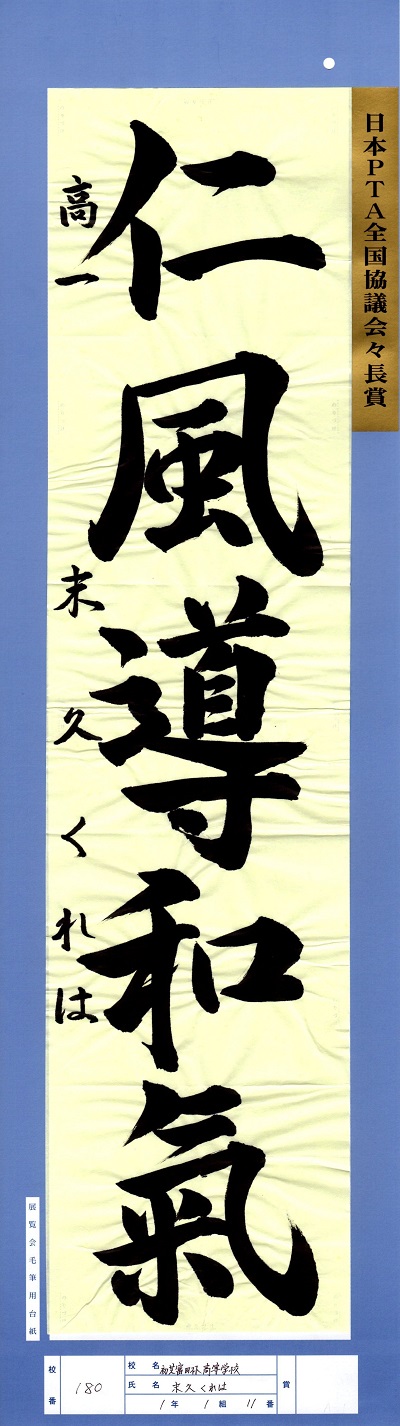 日本PTA全国協議会々長賞
仁風導和氣
高一 末久くれは
展覧会毛筆用台紙
校番 180
校名 初芝富田林高等学校
氏名 末久くれは
1年 1組 11番
賞